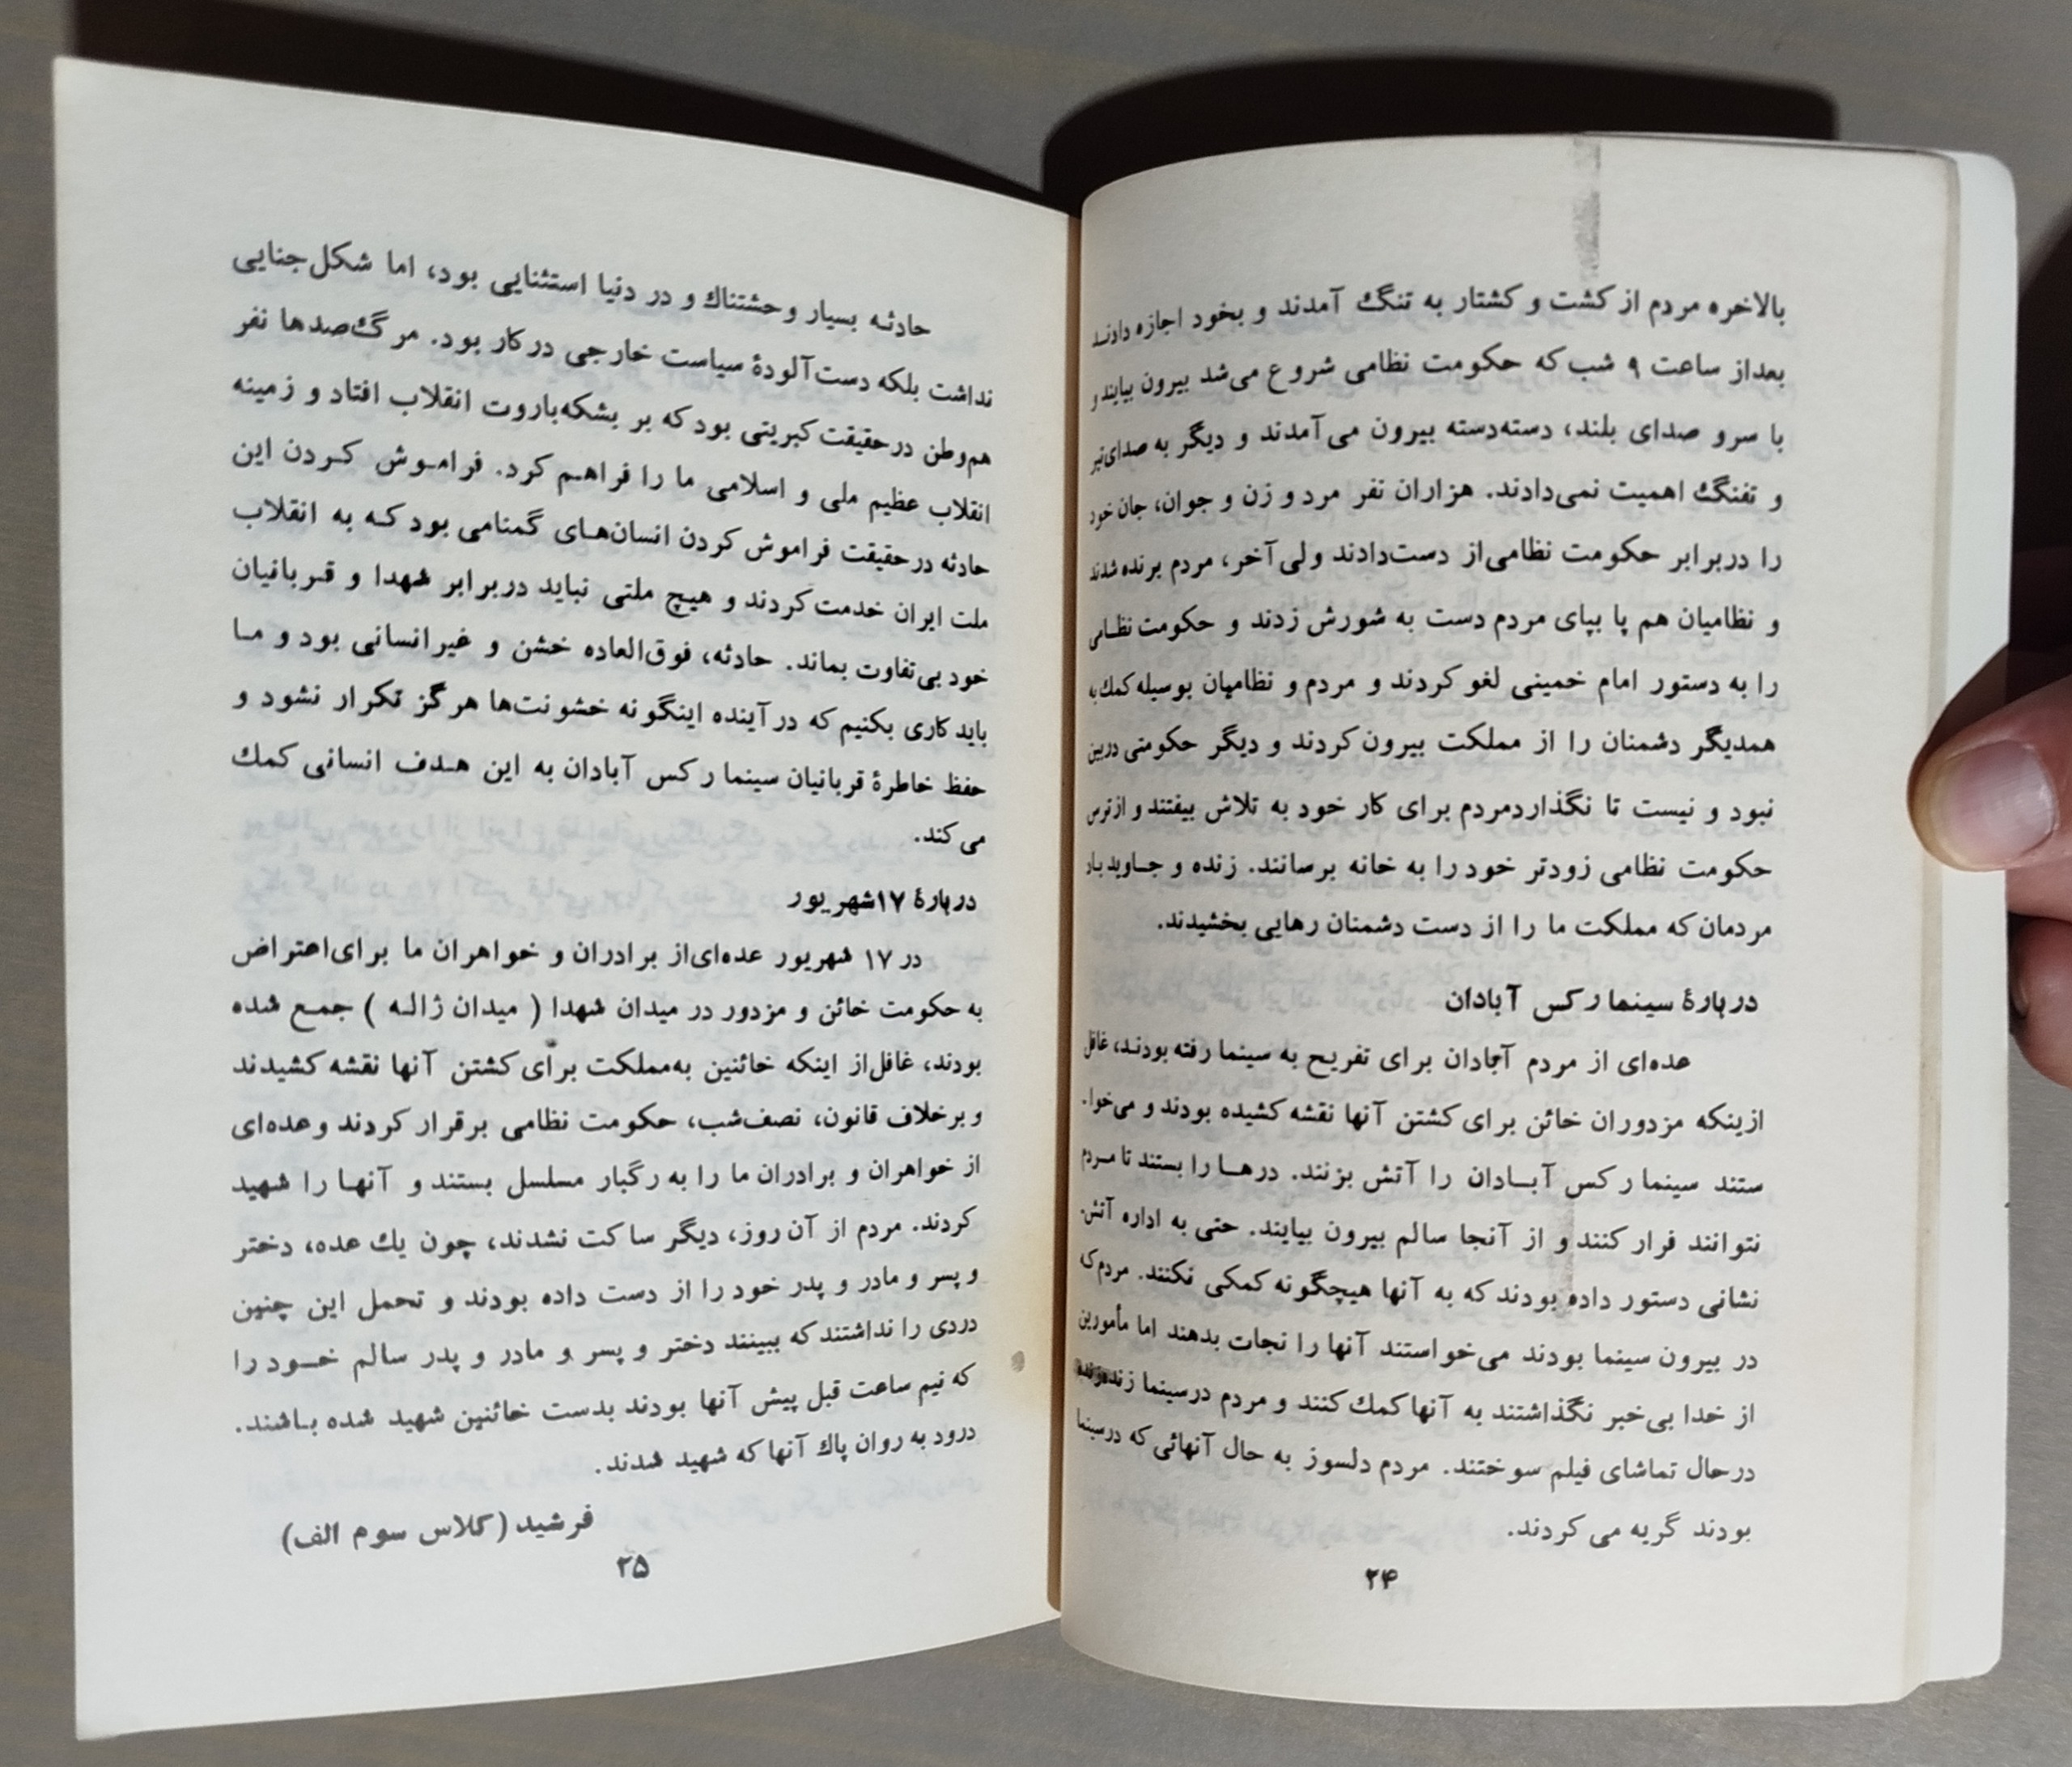 بالاخره مردم از کشت و کشتار به تنگ آمدند و بخود اجازه دادند
بعداز ساعت ۹ شب که حکومت نظامی شروع می‌شد بیرون بیایند و
با سرو صدای بلند، دسته‌دسته بیرون می‌آمدند و دیگر به صدای تیر
و تفنگ اهمیت نمی‌دادند. هزاران نفر مرد و زن و جوان، جان خود
را دربرابر حکومت نظامی از دست‌دادند ولی آخر، مردم برنده شدند
و نظامیان هم پا بپای مردم دست به شورش زدند و حکومت نظامی
را به دستور امام خمینی لغو کردند و مردم و نظامیان بوسیله کمك به
همدیگر دشمنان را از مملکت بیرون کردند و دیگر حکومتی دربین
نبود و نیست تا نگذاردمردم برای کار خود به تلاش بیفتند و از ترس
حکومت نظامی زودتر خود را به خانه برسانند. زنده و جاوید باد
مردمان که مملکت ما را از دست دشمنان رهایی بخشیدند.
دربارهٔ سینما رکس آبادان
عده‌ای از مردم آبادان برای تفریح به سینما رفته بودند، غافل
ازینکه مزدوران خائن برای کشتن آنها نقشه کشیده بودند و می‌خوا-
ستند سینما رکس آبادان را آتش بزنند. درها را بستند تا مردم
نتوانند فرار کنند و از آنجا سالم بیرون بیایند. حتی به اداره آتش-
نشانی دستور داده بودند که به آنها هیچگونه کمکی نکنند. مردم که
در بیرون سینما بودند می‌خواستند آنها را نجات بدهند اما مأمورین
از خدا بی‌خبر نگذاشتند به آنها کمك کنند و مردم درسینما زنده‌زنده
درحال تماشای فیلم سوختند. مردم دلسوز به حال آنهائی که درسینما
بودند گریه می‌کردند.
۲۴
حادثه بسیار وحشتناك و در دنیا استثنایی بود، اما شکل جنایی
نداشت بلکه دست‌آلودهٔ سیاست خارجی درکار بود. مرگ صدها نفر
هم‌وطن درحقیقت کبریتی بود که بر بشکه‌باروت انقلاب افتاد و زمینه
انقلاب عظیم ملی و اسلامی ما را فراهم کرد. فراموش کردن این
حادثه درحقیقت فراموش کردن انسان‌های گمنامی بود که به انقلاب
ملت ایران خدمت کردند و هیچ ملتی نباید دربرابر شهدا و قربانیان
خود بی‌تفاوت بماند. حادثه، فوق‌العاده خشن و غیرانسانی بود و ما
باید کاری بکنیم که درآینده اینگونه خشونت‌ها هرگز تکرار نشود و
حفظ خاطرهٔ قربانیان سینما رکس آبادان به این هدف انسانی کمك
می‌کند.
دربارهٔ ۱۷شهریور
در ۱۷ شهریور عده‌ای‌از برادران و خواهران ما برای‌اعتراض
به حکومت خائن و مزدور در میدان شهدا ( میدان ژاله ) جمع شده
بودند، غافل‌از اینکه خائنین به‌مملکت برای کشتن آنها نقشه کشیدند
و برخلاف قانون، نصف‌شب، حکومت نظامی برقرار کردند و عده‌ای
از خواهران و برادران ما را به رگبار مسلسل بستند و آنها را شهید
کردند. مردم از آن روز، دیگر ساکت نشدند، چون یك عده، دختر
و پسر و مادر و پدر خود را از دست داده بودند و تحمل این چنین
دردی را نداشتند که ببینند دختر و پسر و مادر و پدر سالم خود را
که نیم ساعت قبل پیش آنها بودند بدست خائنین شهید شده باشند.
درود به روان پاك آنها که شهید شدند.
فرشید (کلاس سوم الف)
۲۵